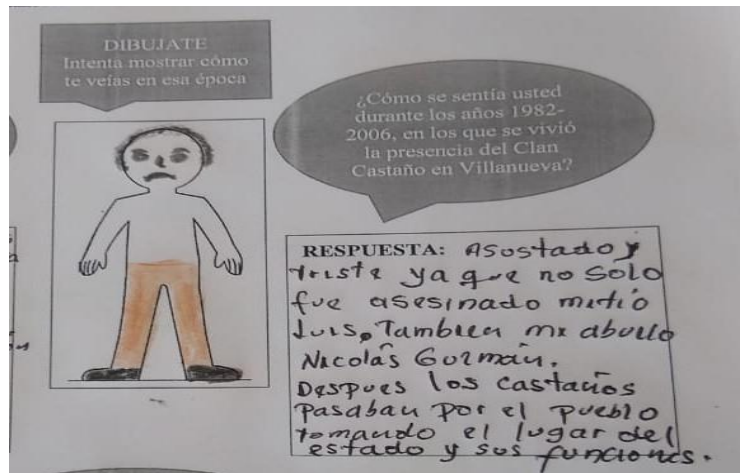 DIBUJATE
Intenta mostrar cómo
te veías en esa época
¿Cómo se sentía usted
durante los años 1982-
2006, en los que se vivió
la presencia del Clan
Castaño en Villanueva?
RESPUESTA: Asustado y
triste ya que no solo
fue asesinado mi tio
Luis, Tambien mi abuelo
Nicolás Guzmán.
Despues los castaños
pasaban por el pueblo
tomando el lugar del
estado y sus funciones.